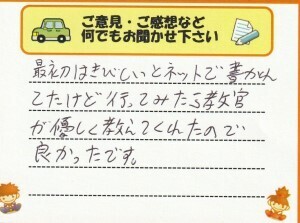 ご意見・ご感想など
何でもお聞かせ下さい
最初はきびしいっとネットで書かれ
てたけど行ってみたら教官
が優しく教えてくれたので
良かったです。